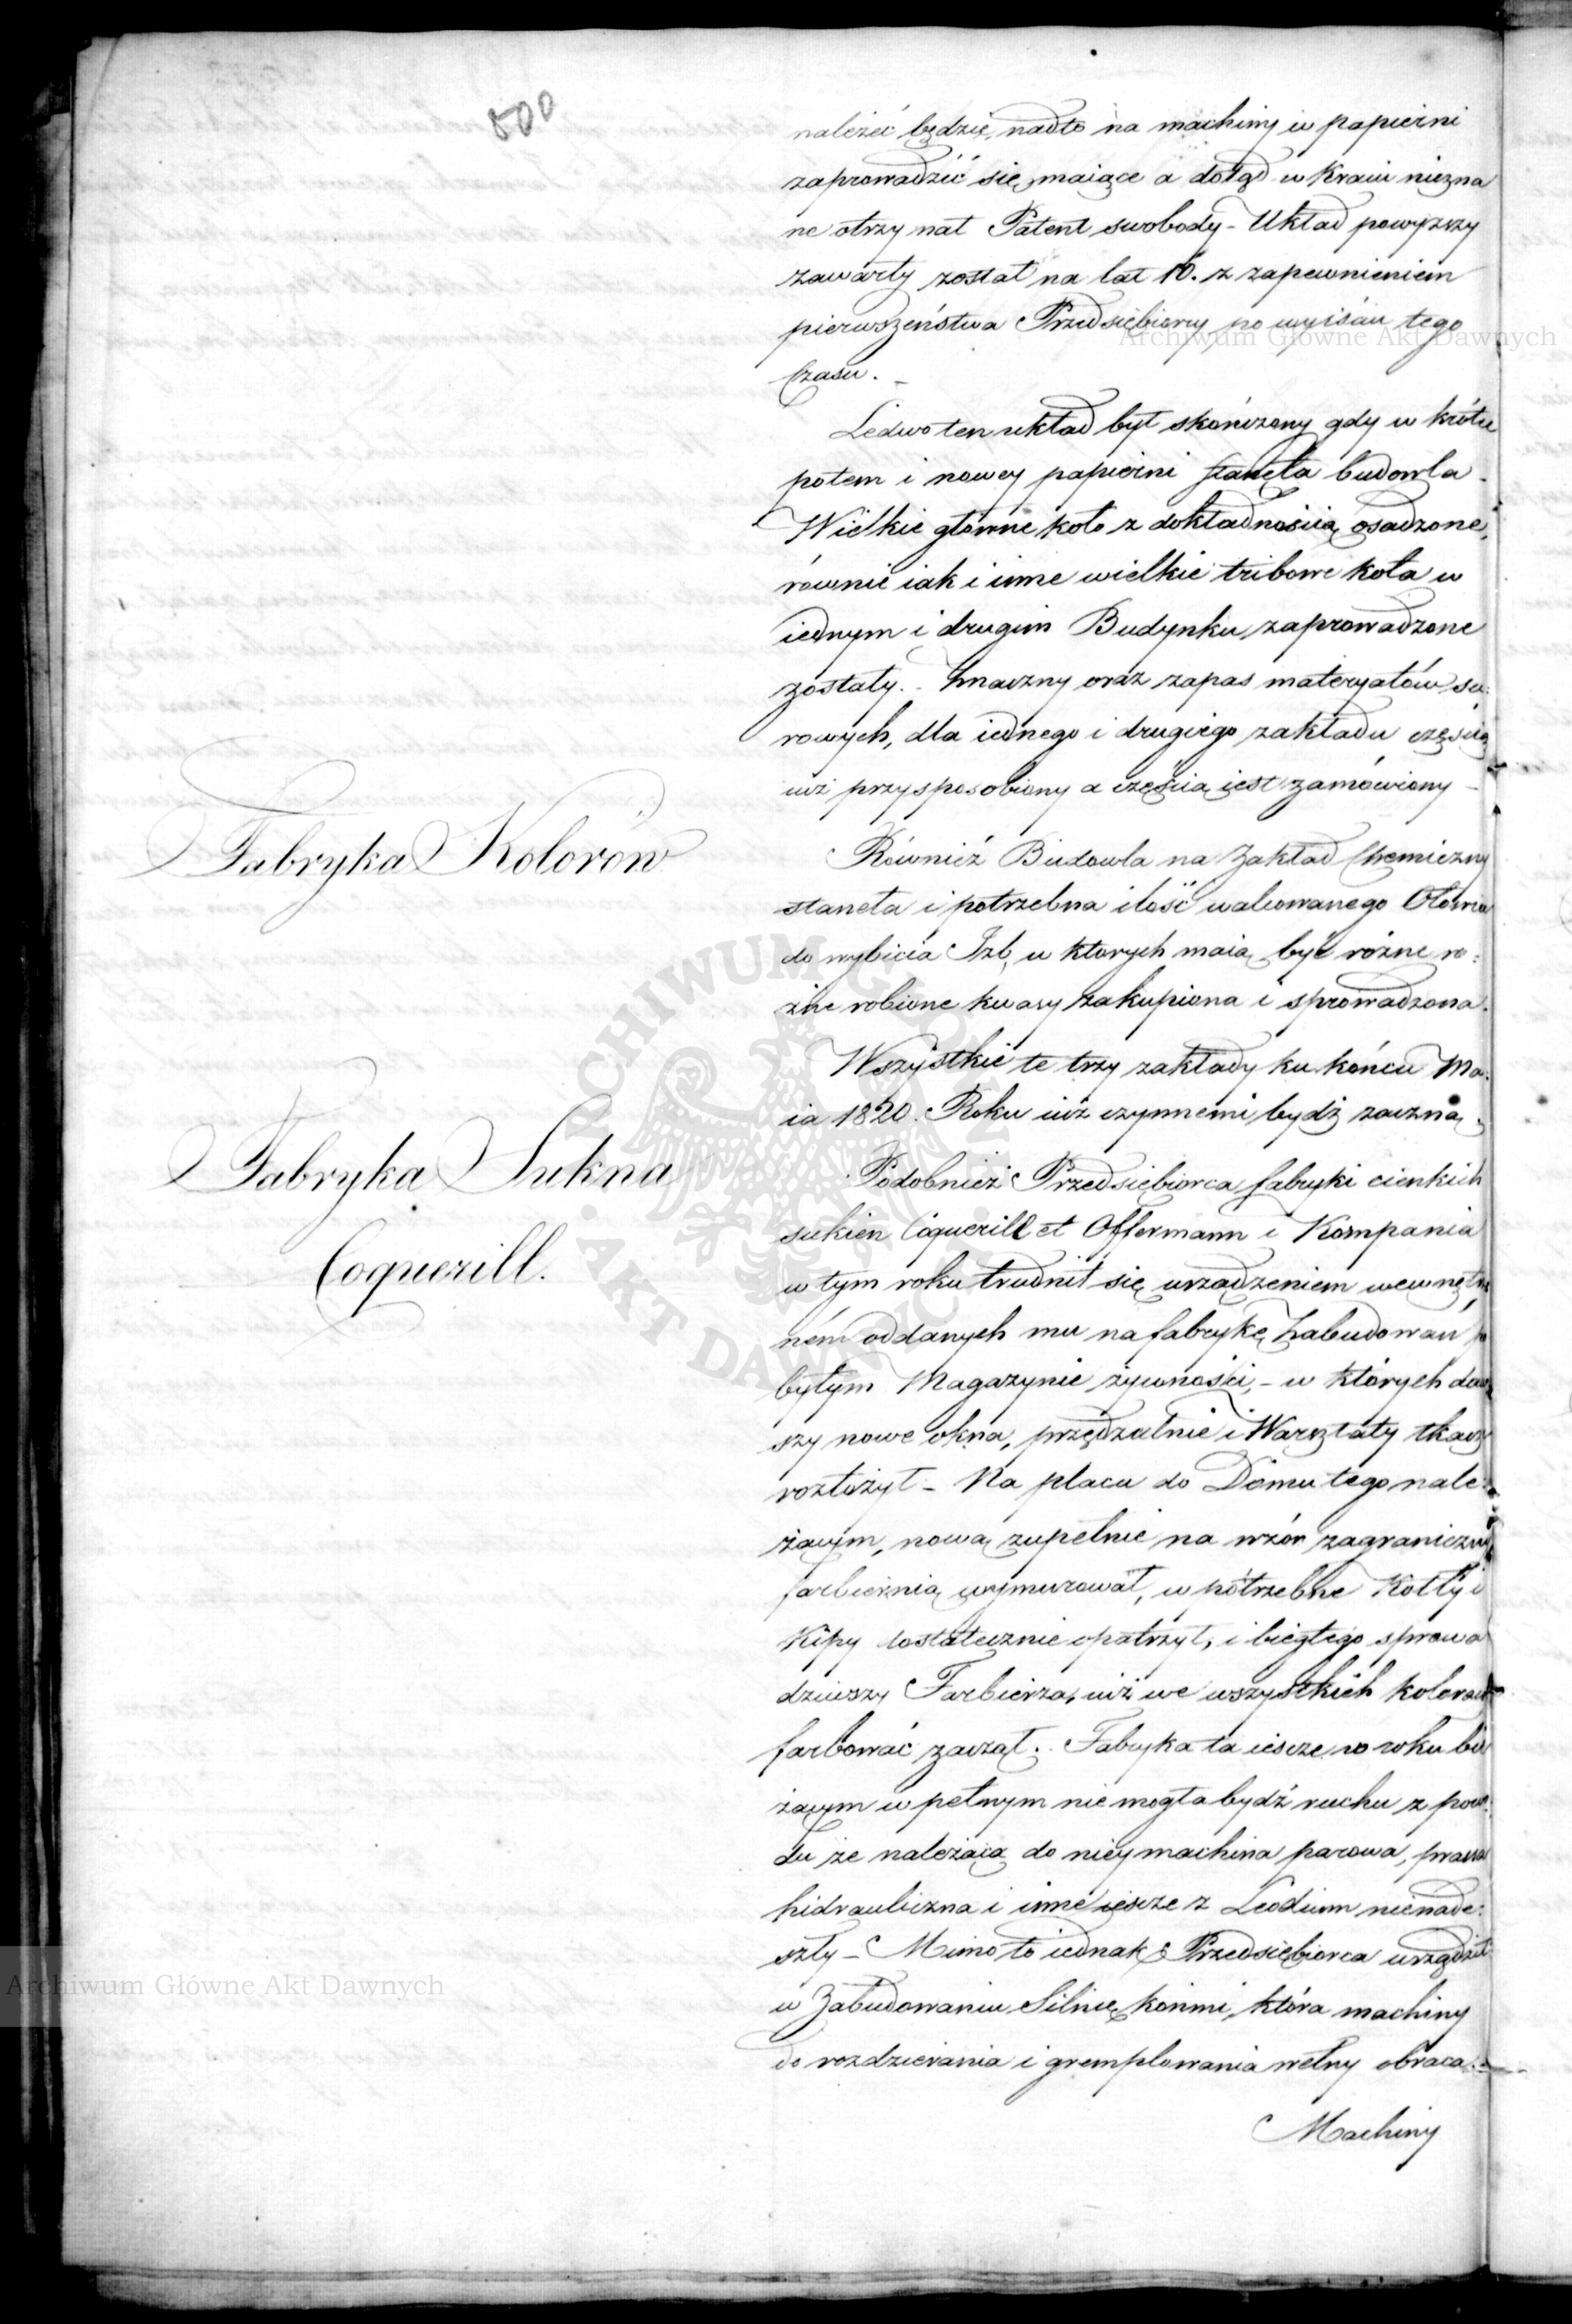 800
należeć będzie, nadto na machiny w papierni
zaprowadzić się maiące a dotąd w Kraiu niezna
ne otrzymał Patent swobody - Układ powyższy
zawarty został na lat 10. z zapewnieniem
pierwszeństwa Przedsiębiorcy po wyiściu tego
Czasu. -
Ledwo ten układ był skończony gdy w krótce
potem i nowey papierni stanęła budowla -
Wielkie główne koło z dokładnością osadzone,
równie iak i inne wielkie tribowe koła w
iednym i drugim Budynku zaprowadzone
zostały. - Znaczny oraz zapas materyałów su:
rowych, dla iednego i drugiego zakładu częścią
iuż przysposobiony a częścią iest zamówiony -
Fabryka Kolorów
Również Budowla na Zakład Chemiczny
staneła i potrzebna ilość walcowanego Ołowiu
do wybicia Izb, w ktorych maią być różne ro:
żne robione kwasy zakupiona i sprowadzona.
Wszystkie te trzy zakłady ku końcu Ma:
ia 1820. Roku iuż czynnemi bydź zaczną.
Fabryka Sukna
Coquerill.
Podobnież Przedsiębiorca fabryki cienkich
sukien Coquerill et Offermann i Kompania
w tym roku trudnił się urządzeniem wewnętrz
ném oddanych mu na fabrykę Zabudowań po
byłym Magazynie żywności, - w których daw
szy nowe okna, przędzalnie i Warsztaty tkacz
rozłożył - Na placu do Domu tego nale:
żącym, nową zupełnie na wzór zagraniczny
farbiernią wymurował, w potrzebne Kotły i
Kipy dostatecznie opatrzył, i biegłego sprowa
dziwszy Farbierza, iuż we wszystkich kolorach
farbować zaczął. Fabryka ta iescze w roku bie
żącym w pełnym nie mogła bydź ruchu z powo
du że należąca do niey machina parowa, prassa
hidrauliczna i inne iescze z Leodium nienade:
szły - Mimo to iednak Przedsiębiorca urządził
w Zabudowaniu Silnię końmi, która machiny
do rozdzierania i gremplowania wełny obraca. -
Machiny
Archiwum Główne Akt Dawnych
Archiwum Główne Akt Dawnych
ARCHIWUM GŁÓWNE AKT DAWNYCH